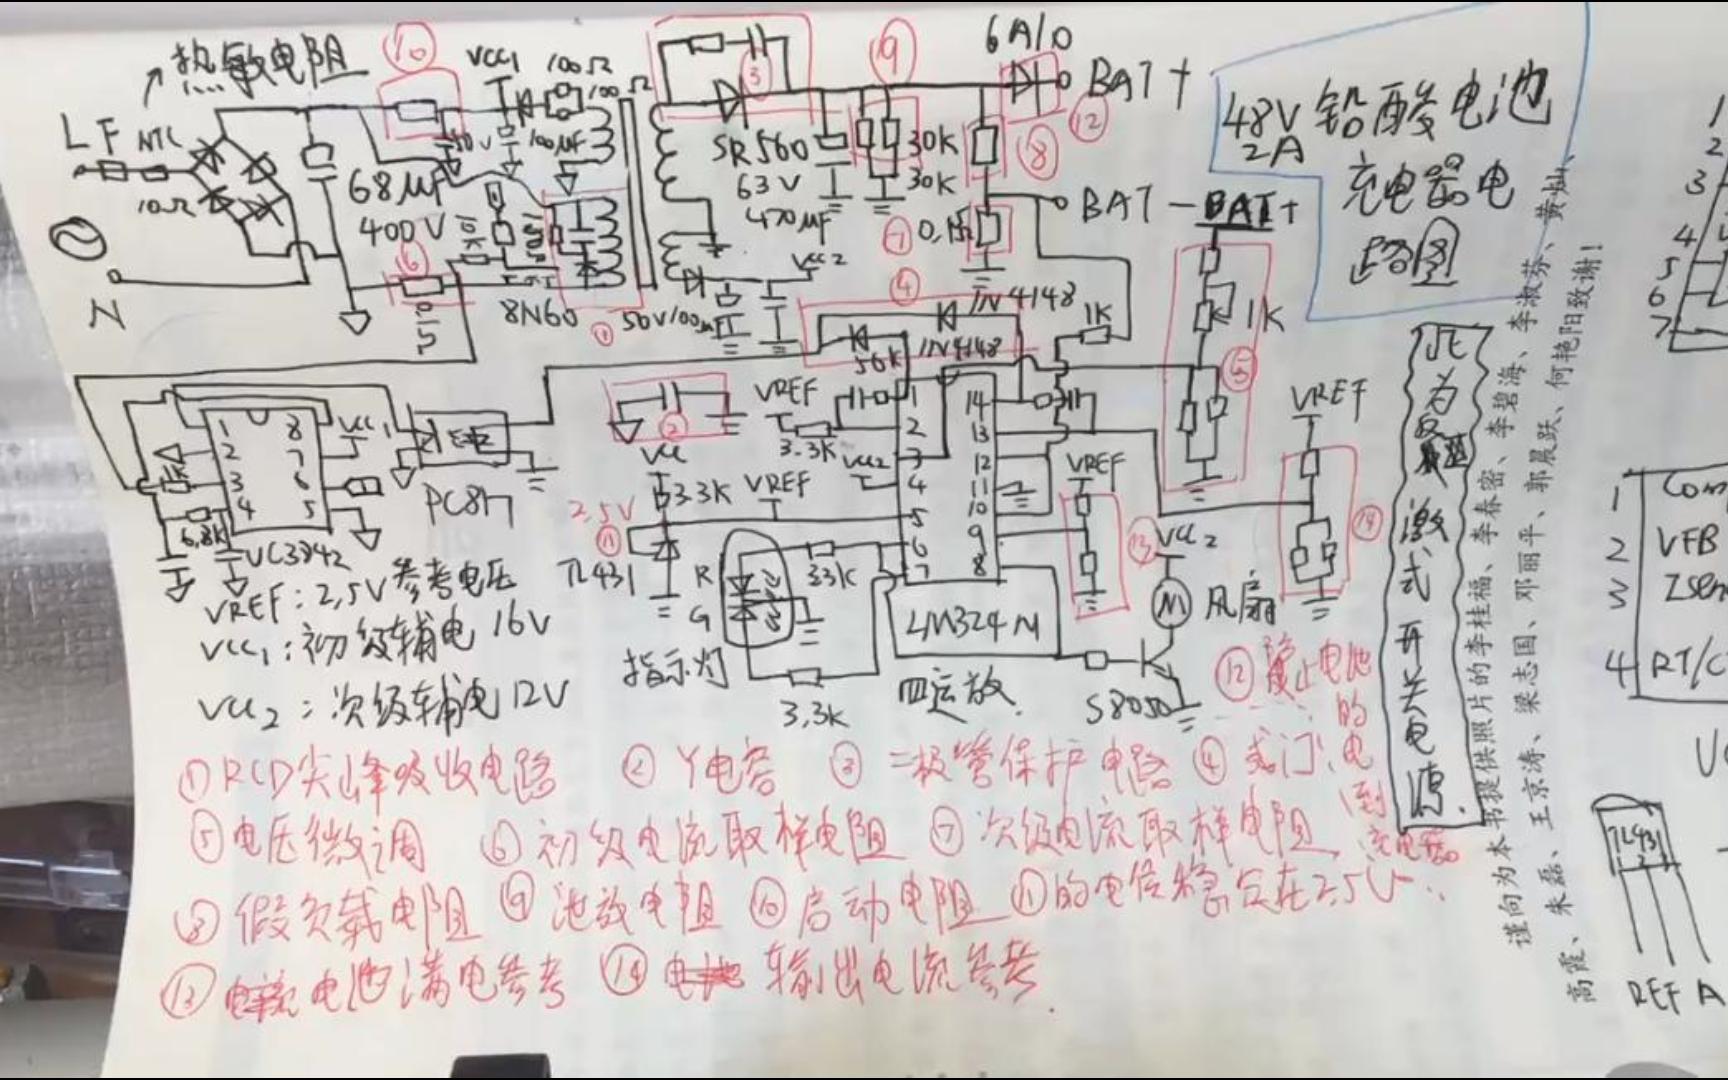 热敏电阻
⑩
VCC1
100Ω
100Ω
③
⑨
6A10
BAT+
⑫
L F NTC
10Ω
68μF
400V
50V
100μF
SR560
63V
470μF
30K
30K
⑧
48V 铅酸电池
2A
充电器电
路图
BAT-
BAT+
⑦ 0.1Ω
N
⑥
0.1Ω
10K
8N60
①
50V/100μF
VCC2
④
1N4148
1N4148
56K
1K
1K
⑤
1 8
2 7
3 6
4 5
VCC1
1K
6.8K
VC3842
PC817
②
VREF
3.3K
VCC2
VCC
3.3K
VREF
2.5V
⑪
TL431
R
G
3.3K
3.3K
指示灯
1 14
2 13
3 12
4 11
5 10
6 9
7 8
LM324N
四运放
VREF
⑬
VCC2
M 风扇
S8050
VREF
⑭
此为反激式开关电源.
VREF: 2.5V参考电压
VCC1: 初级辅电 16V
VCC2: 次级辅电 12V
⑫ 防止电池的电倒到充电器
① RCD尖峰吸收电路 ② Y电容 ③ 二极管保护电路 ④ 或门
⑤ 电压微调 ⑥ 初级电流取样电阻 ⑦ 次级电流取样电阻
⑧ 假负载电阻 ⑨ 泄放电阻 ⑩ 启动电阻 ⑪ 的电位稳定在2.5V
⑬ 电池满电参考 ⑭ 输出电流参考.
谨向为本书提供照片的李桂福、李春密、李碧海、李淑芬、黄灿、
高霞、朱磊、王京涛、梁志国、邓丽平、郭晨跃、何艳阳致谢!
1
2
3
4
5
6
7
1 Com
2 VFB
ISen
4 RT/C
TL431
REF A